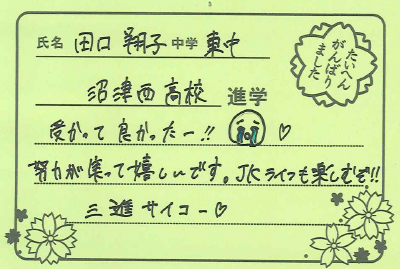 氏名 田口 翔子 中学 東中
沼津西高校 進学
受かって良かったー!! ♡
努力が実って嬉しいです。JKライフも楽しむぞ!!
三進サイコー♡
たいへん
がんばり
ました